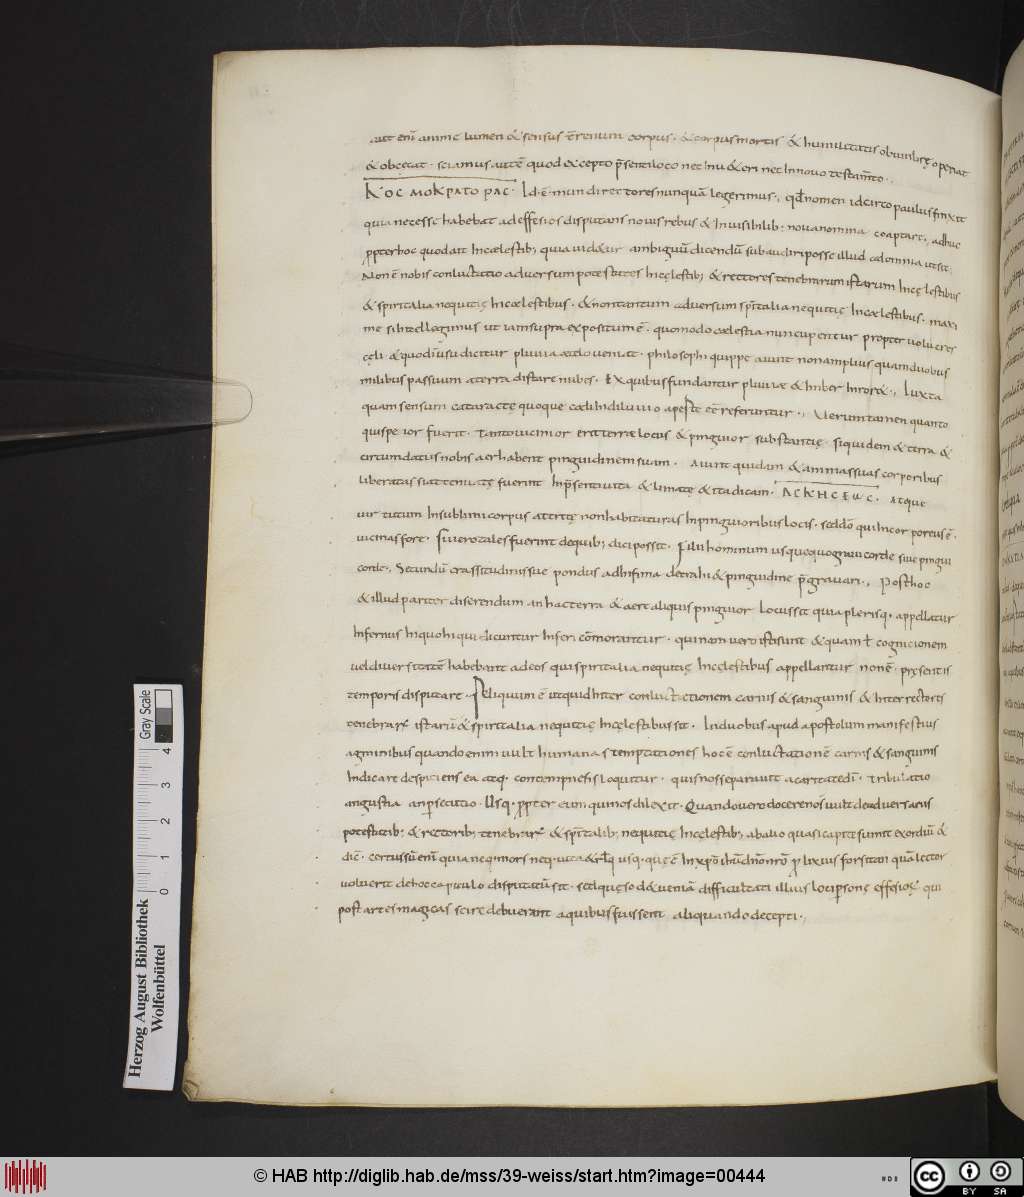 aut enī animę lumen & sensus t̄renum corpus. & corpus mortis & humilitatis obumbrę operiat
& obcęcat. sciamus autē quod excepto p̄senti loco nec in u&eri nec In nouo testam̄to.
KOCMOKPATOPAC. Id·ē· mundi rectores nunquā legerimus; qđ nomen idcirco paulus finxit
quia necesse habebat ad effesios disputans nouis rebus & Inuisibilib; noua nomina coaptare. adhuc
p̱pter hoc quod ait In cœlestib; quia uid&ur ambiguū dicendū subaudiri posse illud calomnia ut sit
Non ē nobis conluctatio aduersum potestates In cęlestib; & rectores tenebrarum istarum In cęlestibus
& spiritalia nequitię In cœlestibus. & non tantum aduersum sp̄italia nequitię In cœlestibus. maxi
me si ht̄ellegimus ut iam supra expositum ē. quomodo cœlestia nuncupentur propter uolucres
cęli. & quod īusu dicitur pluuia æ cœlo ueniat. philosophi quippe aiunt non amplius quam duobus
milibus passuum a terra distare nubes. Ex quibus fundantur pluuiæ & Imber In ror&. Iuxta
quam sensum cataractę quoque cœli In diluuio apestę eē referuntur. Uerum tamen quanto
quis peior fuerit. Tanto uicinior erit terræ locus & pinguior substantię. siquidem & terra &
circumdatus nobis aer habent pinguidinem suam. Aiunt quidam & animas suas corporibus
liberatas si attenuatę fuerint In p̄senti uita & limatę & ita dicam. ACKHCEωC. atque
uirtutum In sublimi corpus a terrę non habitaturas In pinguioribus locis. sed dō qui In corpore usę ē.
uicinas fore. si uero tales fuerint de quib; dici possit. Filii hominum usquequo graui corde siue pingui
corde. Secundū crassitudinis suę pondus ad Infima detrahi & pinguidine p̄grauari. Post hoc
& illud pariter disserendum an hac terra & aere aliquis pinguior locus sit quia plerisq; appellatur
Infernus In quo hi qui dicuntur Inferi cōmorantur. quinam uero isti sunt & quam t̄ cognicionem
uel diuersitatē habebant ad eos qui spiritalia nequitię In cęlestibus appellantur non ē pręsentis
temporis disputare. Reliquum ē ut equid Inter conluctationem carnis & sanguinis & Inter rectores
tenebrarȝ istarū & spiritalia nequitię In cęlestibus sit. In duobus apud apostolum manifestius
agminibus quando enim uult humanas temptationes hoc ē conluctationē carnis & sanguinis
Indicare despiciens ea atq; contemptnens loquitur. quis nos separauit a caritate dī. Tribulatio
angustia an p̱secutio. Usq; p̱pter eum qui nos dilexit. Quando uero docere nos uult de aduersariis
potestatib; & rectorib; tenebrarȝ & sp̄italib; nequitię In cęlestib; ab alio quasi capite sumit exordiū &
dic̄. certus sū enī quia neq; mors neq; uita & rlq̄ usq; quę ē In xp̄o ihū dn̄o nr̄o p̱ lixius forsitan quā lector
uoluerit de hoc capitulo disputatū sit. sed quęso d& ueniā difficultati illius loci p̱sonę effesioȝ qui
post artes magicas scire debuerant a quibus fuissent aliquando decepti.
Gray Scale
0 1 2 3 4
Herzog August Bibliothek
Wolfenbüttel
© HAB http://diglib.hab.de/mss/39-weiss/start.htm?image=00444
cc BY SA